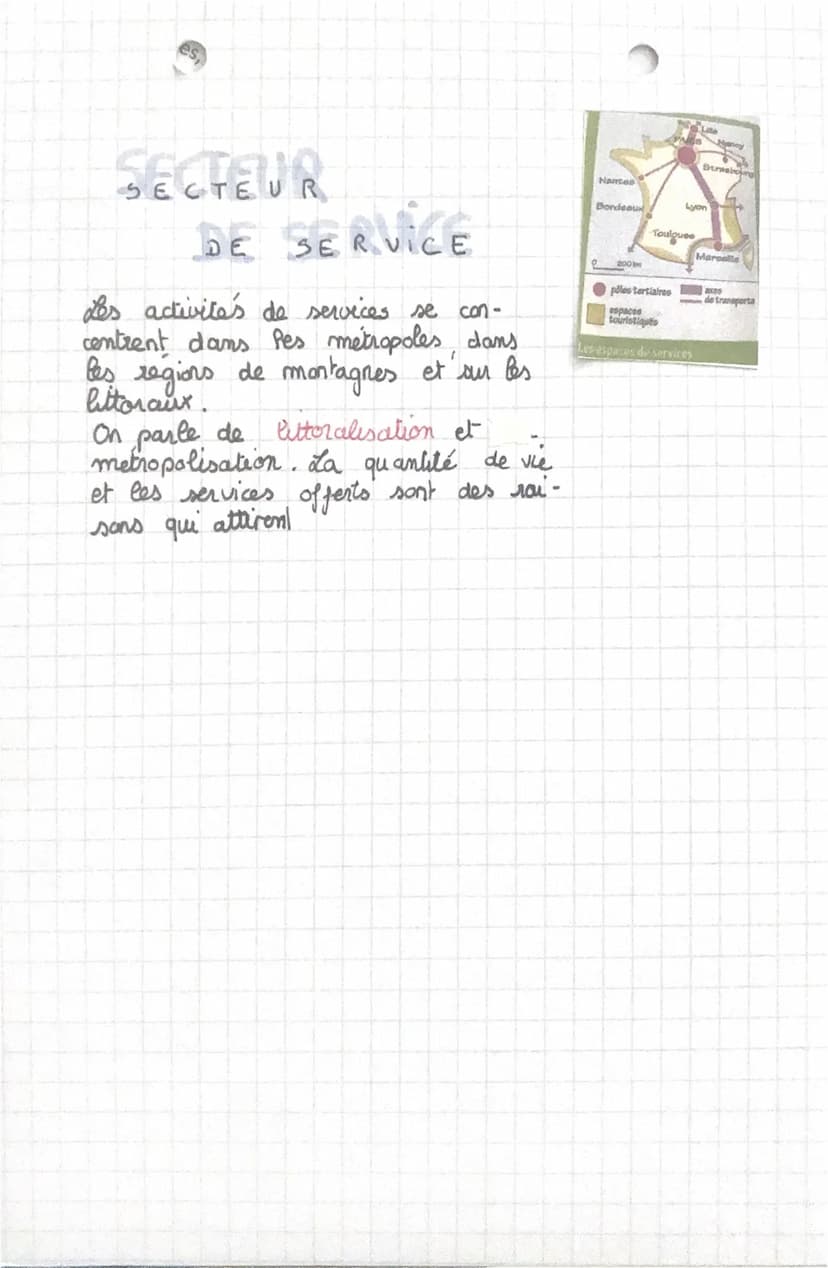 es,
SECTEUR
DE SERVICE
Les activités de services se con-
centrent dans les métropoles, dans
les régions de montagnes et sur les
littoraux.
On parle de littoralisation et
métropolisation. La quantité de vie
et les services offerts sont des rai-
sons qui attirent
Lille
PARIS
Nancy
Strasbourg
Nantes
Bordeaux
Lyon
Toulouse
Marseille
0 200 km
pôles tertiaires
axes
de transports
espaces
touristiques
Les espaces de services